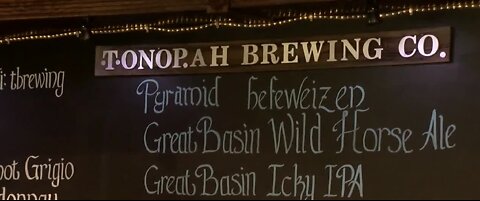 TONOPAH BREWING CO.
i: tbrewing
Pyramid hefeweizen
Great Basin Wild Horse Ale
Great Basin Icky IPA
Grigio